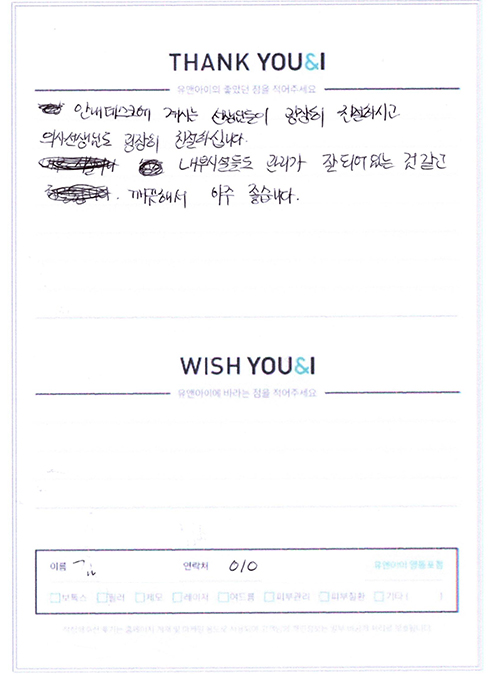 THANK YOU&I
유앤아이의 좋았던 점을 적어주세요
안내데스크에 계시는 선생님들이 굉장히 친절하시고
의사선생님도 굉장히 친절하십니다.
내부시설들도 관리가 잘 되어 있는 것 같고
깨끗해서 아주 좋습니다.
WISH YOU&I
유앤아이에 바라는 점을 적어주세요
이름 김 연락처 010 유앤아이 영등포점
보톡스 필러 제모 레이저 여드름 피부관리 피부질환 기타 ( )